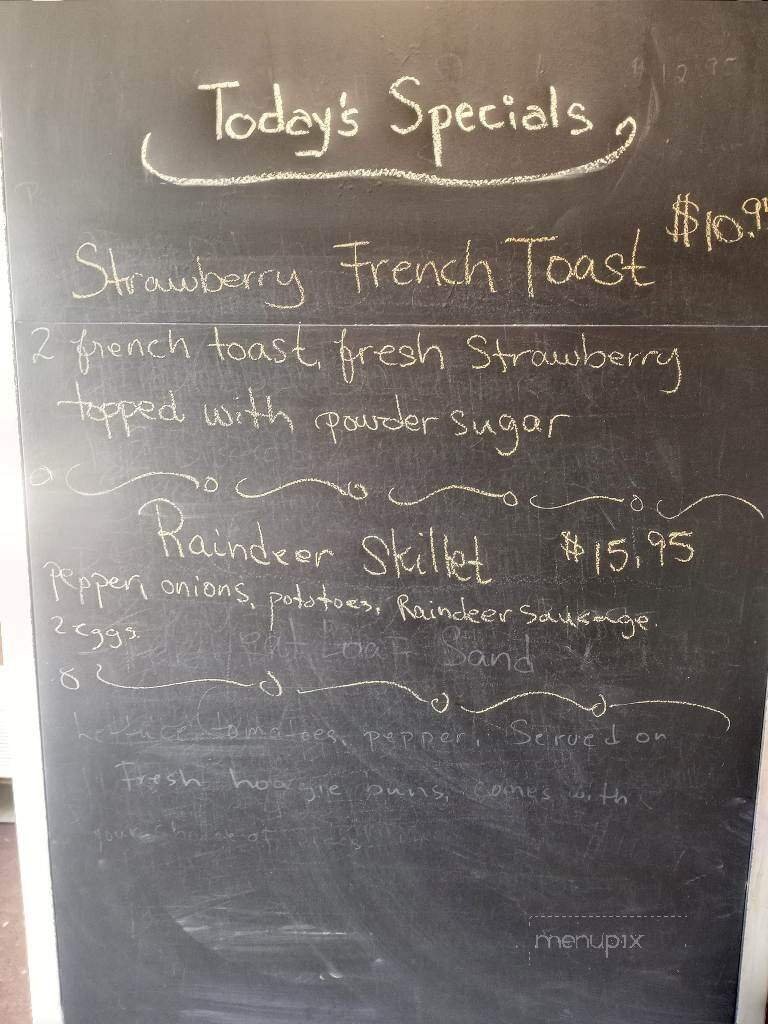 Today's Specials
$10.9
Strawberry French Toast
2 french toast, fresh strawberry
topped with powder sugar
Raindeer Skillet $15.95
pepper, onions, potatoes, Raindeer sausage
2 eggs
Sand
Lettuce tomatoes, pepper, Served on
Fresh hoagie buns, comes with
menupix